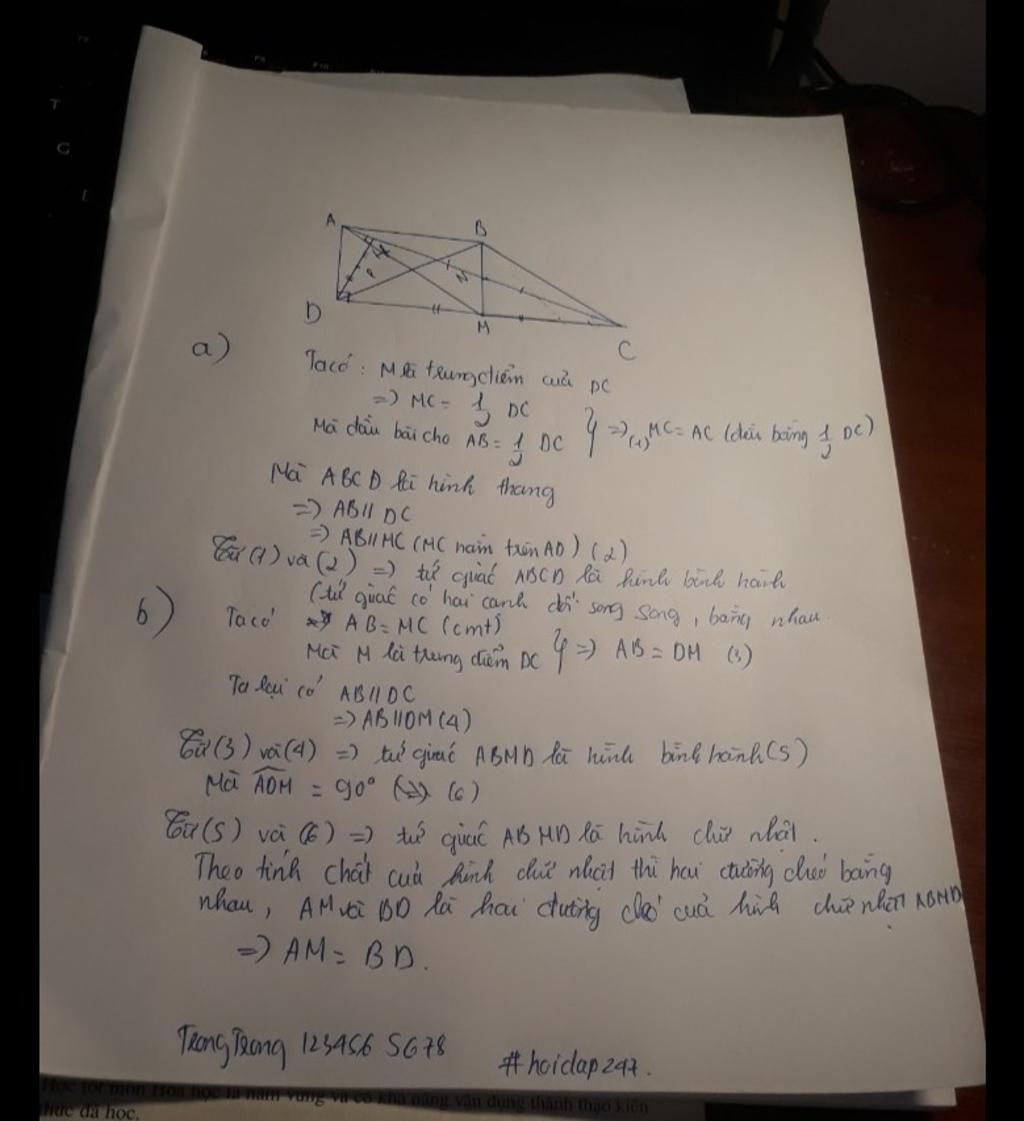 A B
D M C
N
a)
Ta có : M là trung điểm của DC
=> MC = 1/2 DC
Mà đầu bài cho AB = 1/2 DC } => (1) MC = AC (đều bằng 1/2 DC)
Mà ABCD là hình thang
=> AB // DC
=> AB // MC (MC nằm trên AD) (2)
Từ (1) và (2) => tứ giác ABCD là hình bình hành
(tứ giác có hai cạnh đối song song, bằng nhau.
b) Ta có AB = MC (cmt)
Mà M là trung điểm DC } => AB = DM (3)
Ta lại có AB // DC
=> AB // DM (4)
Từ (3) và (4) => tứ giác ABMD là hình bình hành (5)
Mà ADM = 90° (6)
Từ (5) và (6) => tứ giác ABMD là hình chữ nhật.
Theo tính chất của hình chữ nhật thì hai đường chéo bằng
nhau, AM và BD là hai đường chéo của hình chữ nhật ABMD
=> AM = BD.
TrangTrang 123456 5678 #hoidap247.
Học tốt môn Hóa học là nắm vững và có khả năng vận dụng thành thạo kiến
thức đã học.